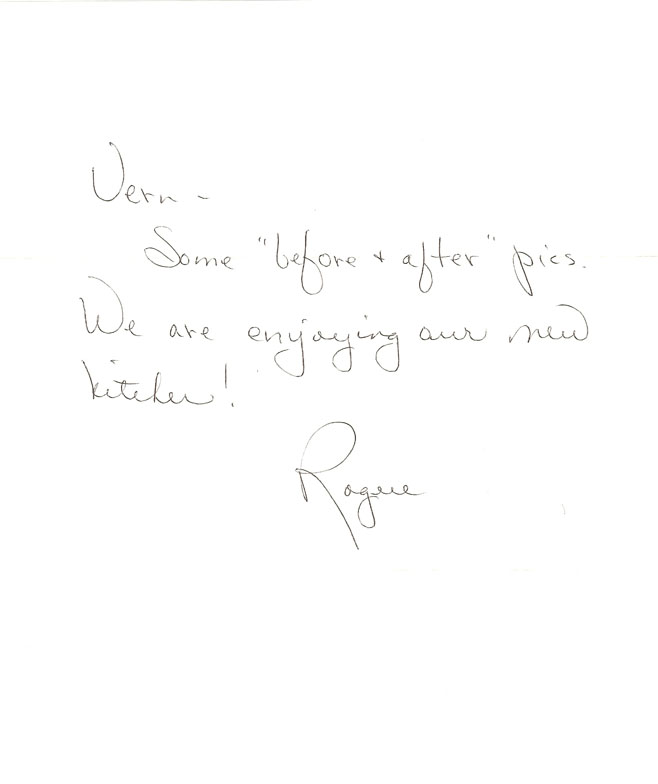 Vern -
Some "before + after" pics.
We are enjoying our new
kitchen!
Rogue